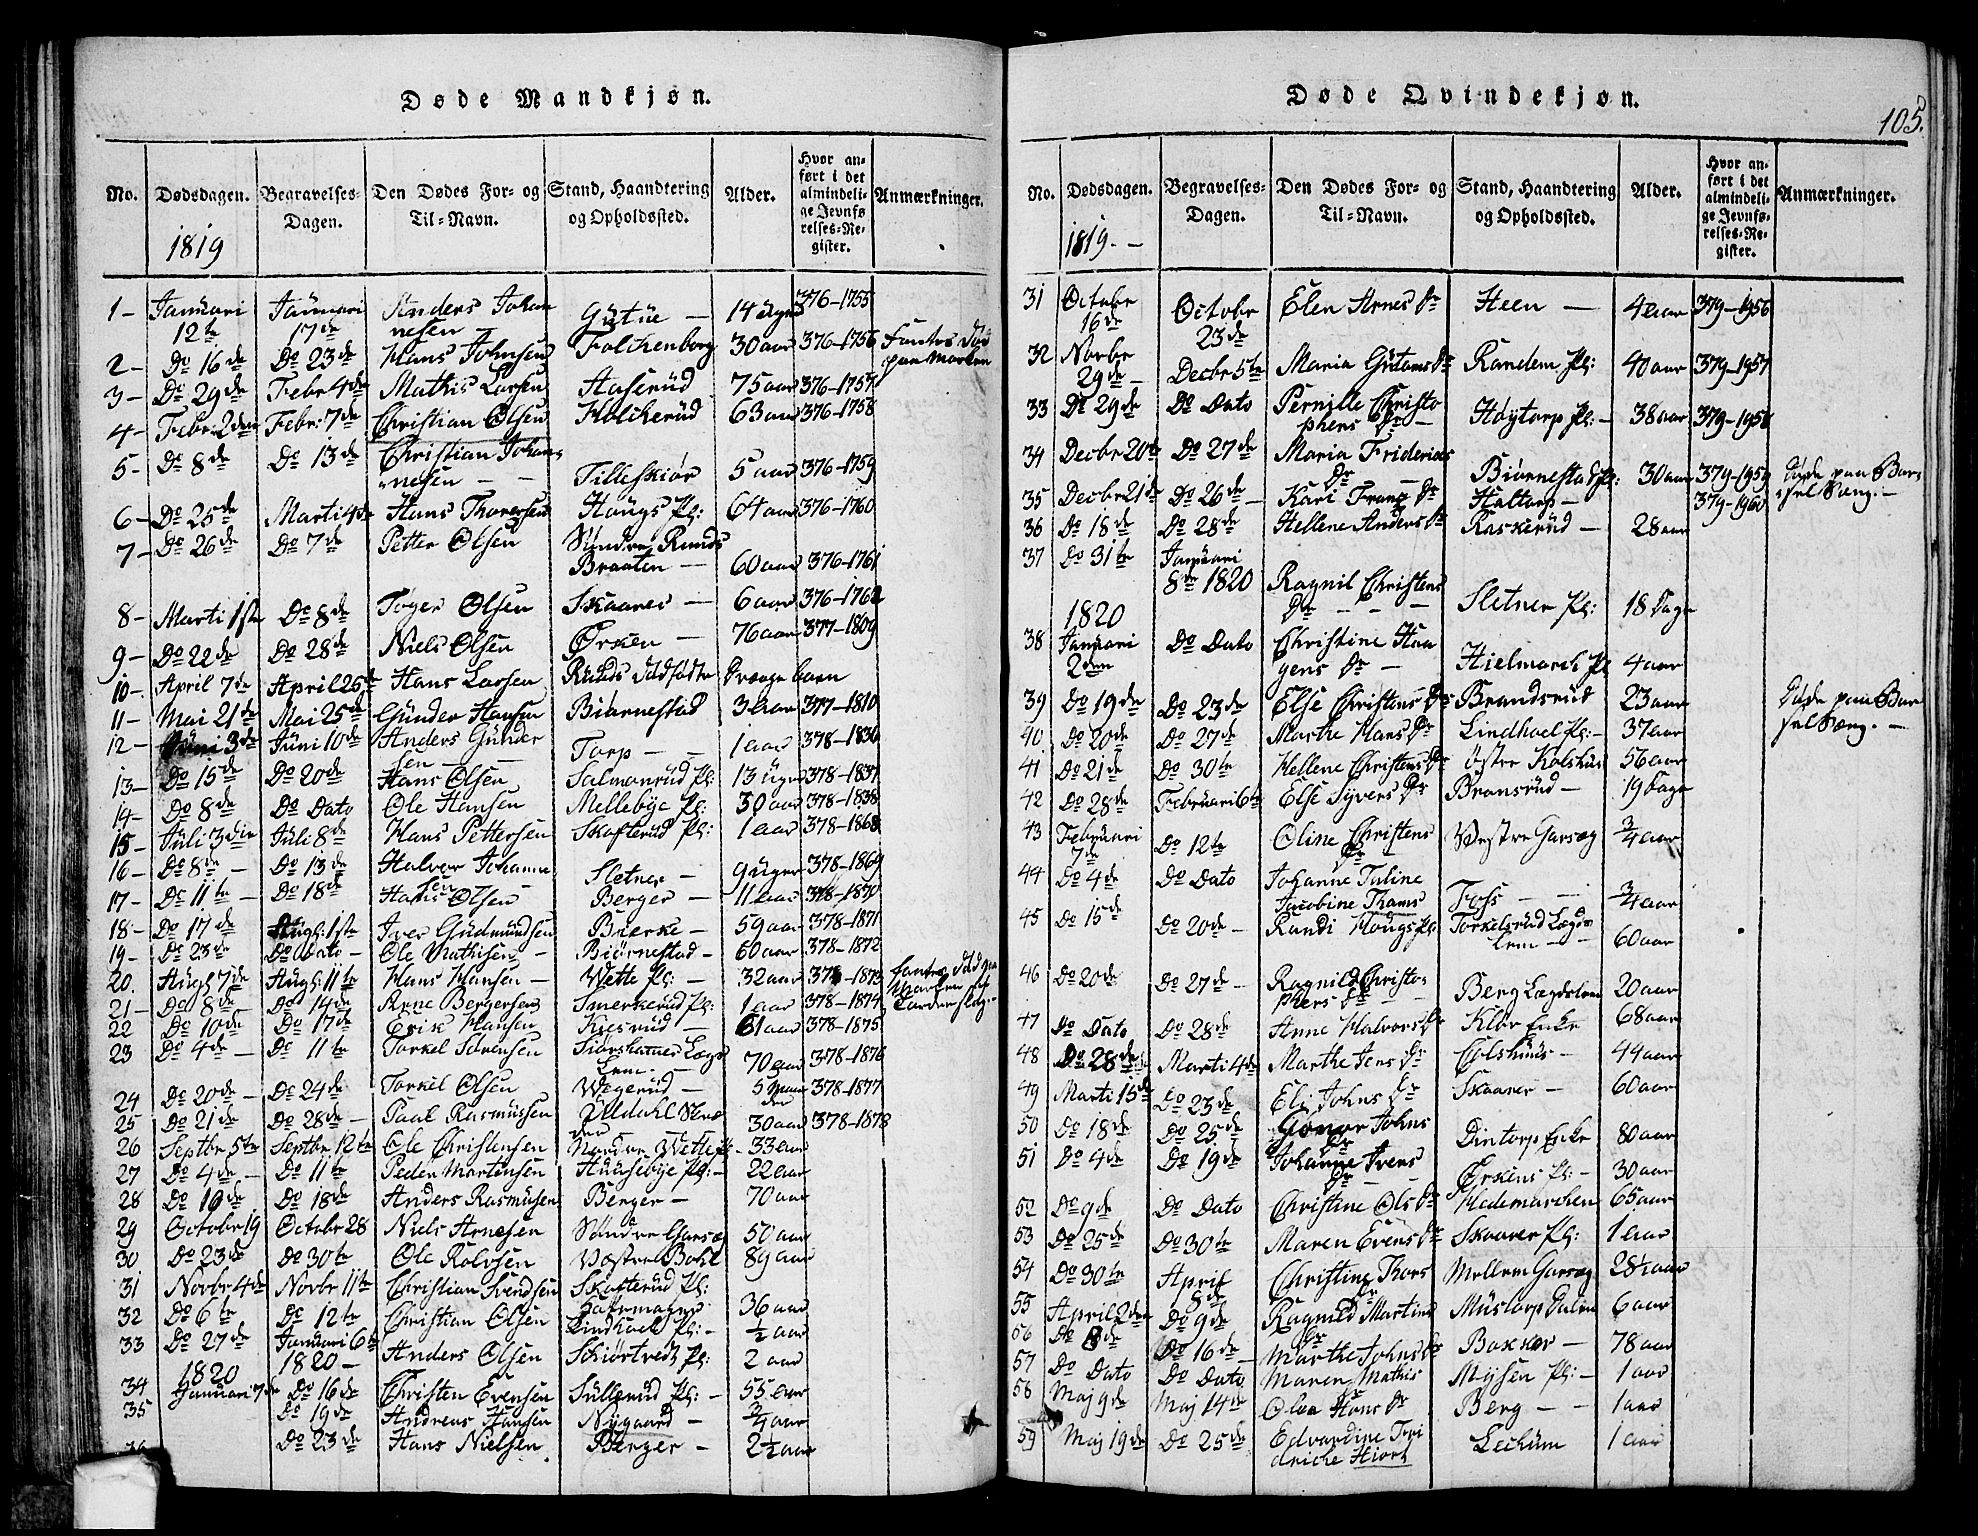 Døde Mandkjøn.
No. Dødsdagen. Begravelses-Dagen. Den Dødes For- og Til-Navn. Stand, Haandtering og Opholdssted. Alder. Hvor anført i det almindelige Jevnførelses-Register. Anmærkninger.
1819
1 - Januari 12te Januari 17de Anders Johannesen Gutue - 14 Uger 376-1755
2 - Do 16de Do 23de Hans Johnsen Folckenborg 30 aar 376-1756 Funtes Död paa Marken
3 - Do 29de Febr 4de Mathis Larsen Aaserud 75 aar 376-1757
4 - Febr: 2den Febr: 7de Christian Olsen Kolckerud 63 aar 376-1758
5 - Do 8de Do 13de Christian Johannesen - - Tilleskiör 5 aar 376-1759
6 - Do 25de Marti 4de Hans Thoresen Hougs Pl: 64 aar 376-1760
7 - Do 26de Do 7de Petter Olsen Söndre Runds Braaten - 60 aar 376-1761
8 - Marti 1ste Do 8de Toger Olsen Skaarer - 6 aar 376-1762
9 - Do 22de Do 28de Niels Olsen Ørken - 76 aar 377-1809
10 - April 7de April 25de Hans Larsen Runds Dödfödte Drænge barn
11 - Mai 21de Mai 25de Gunder Hansen Biörnestad 3 aar 377-1810
12 - Juni 3de Juni 10de Anders Gundersen - Torp - - 1 aar 378-1836
13 - Do 15de Do 20de Hans Olsen Salmonrud Pl: 13 Uger 378-1837
14 - Do 8de Do Dato Ole Hansen Mellebye Pl: 30 aar 378-1838
15 - Juli 3die Juli 8de Hans Pettersen Skofterud Pl: 1 aar 378-1868
16 - Do 8de - Do 13de Halvor Johannesen Sletner - 9 Uger 378-1869
17 - Do 11te - Do 18de Hans Olsen Berger - 11 aar 378-1870
18 - Do 17de Augs: 1ste Iver Gudmundsen Bierke - 59 aar 378-1871
19 - Do 23de Do Dato - Ole Mathisen - Biörnestad - 60 aar 378-1872
20. Augs 7de Augs: 11te Hans Hansen - Wette Pl: - 32 aar 378-1873 Funtes Död paa Marken af Tordenslag
21 - Do 8de Do 14de Arne Bergersen Smerkerud Pl: 1 aar 378-1874
22 Do 10de Do 17de Erik Hansen Kiesrud - 61 aar 378-1875
23 Do 4de - Do 11te Torkel Sörensen Lægs Lem - 70 aar 378-1876
24 Do 20de - Do 24de Torkel Olsen Wegerud - 5 378-1877
25 Do 21de Do 28de - Paul Rasmussen 30 aar 378-1878
26 Septbr 5te Septbr 12te Ole Christensen Nordre Wette Pl - 33 aar
27 Do 4de - Do 11te Peder Martensen Huusebye Pl: - 22 aar
28 Do 19de Do 18de Anders Rasmusen Berger - 70 aar
29 Octobr 19 Octobr 28 Niels Arnesen Söndre Garseg 50 aar
30 Do 23de Do 30te Ole Rolvsen Væstre Bohl 89 aar
31 Novbr 4de Novbr 11te Christian Svendsen Skofterud Pl:
32 Do 6te Do 12te Christian Olsen Lindhoel Pl: - 36 aar
33 Do 27de Januari 6te 1820 - Anders Olsen Skiörtveds Pl: ½ aar
1820
34 Januari 7de Do 16de Christen Evensen Sullerud Pl: - 55 aar
35 Do 19de Andreas Hansen Nygaard - ¾ aar
Do 23de Hans Nielsen Berger - 2½ aar
Døde Qvindekjøn.
105.
No. Dødsdagen. Begravelses-Dagen. Den Dødes For- og Til-Navn. Stand, Haandtering og Opholdssted. Alder. Hvor anført i det almindelige Jevnførelses-Register. Anmærkninger.
1819. -
31 Octobr 16de Octobr 23de Elen Arnes Dr Heen - 4 aar 379-1956
32 Novbr 29de - Decbr 5te Maria Gutoms Dr Randem Pl: 40 aar 379-1957
33 Do 29de Do Dato Pernille Christophers Dr - Höytorp Pl: - 38 aar 379-1958
34 Decbr 20de Do 27de Maria Friderics Dr - Biörnestad Pl: 30 aar 379-1959 Döde paa Barselseng. -
35 Decbr 21de Do 26de - Kari Franz Dr Haltorp - 379-1960
36 Do 18de Do 28de Hellene Anders Dr Raskerud - 28 aar
37 Do 31te Januari 8de 1820 Ragnil Christens Dr - - - Sletner Pl: 18 Dage
1820
38 Januari 2den Do Dato Christine Haagens Dr - Hielmarck Pl 4 aar
39 Do 19de Do 23de Else Christens Dr Brandsrud 23 aar Döde paa Barselseng. -
40 Do 20de Do 27de Marthe Hans Dr Lindhoel Pl: - 37 aar
41 Do 21de Do 30te Hellene Christens Dr Östre Kolshus 56 aar
42 Do 28de Februari 6te Else Syvers Dr Bronsrud - 19 Dage
43 Februari 7de Do 12te Oline Christens Dr Vestre Garseg ¾ aar
44 Do 4de Do Dato Johanne Tuline Jacobine Thams Foss - - ¾ aar
45 Do 15de Do 20de - Randi Hougs Pl: Torkelsrud Lægdslem - 60 aar
46 Do 20de Do 27de - Ragnild Christophers Dr - Berg Lægdslem 20 aar
47 Do Dato Do 28de Anne Halvors Dr Klör Enke 68 aar
48 Do 28de Marti 4de Marthe Jens Dr Colshuus - 44 aar
49 Marti 15de Do 23de Eli Johns Dr Skaarer - 60 aar
50 Do 18de Do 25de Gonor Johns Dr Dintorp Enke 80 aar
51 Do 4de Do 19de Johanne Ivers Dr - Ørkens Pl: - 30 aar
52 Do 9de Do Dato Christine Ols Dr Hedemarcken 65 aar
53 Do 25de Do 30te Maren Evens Dr Skaarer Pl: 1 aar
54 Do 30te April 8de Christine Thors Dr Mellem Garseg 28½ aar
55 April 2den Do 9de Ragnild Martins Dr Mustorp Eulen 6 aar
56 Do 8de Do 16de - Marthe Johns Dr Bakker - 78 aar
57 Do Dato Do Dato Maren Mathis Dr Mysen Pl: - 1 aar
58 Maj 9de Maj 14de Olea Hans Dr Berg - - 1 aar
59 Maj 19de Do 25de Edvardine Fridriche Hiort Lechum 1 aar